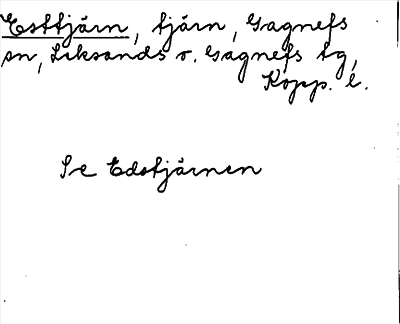 Esttjärn, tjärn, Gagnefs
sn, Leksands o. Gagnefs tg,
Kopp. l.
Se Edstjärnen